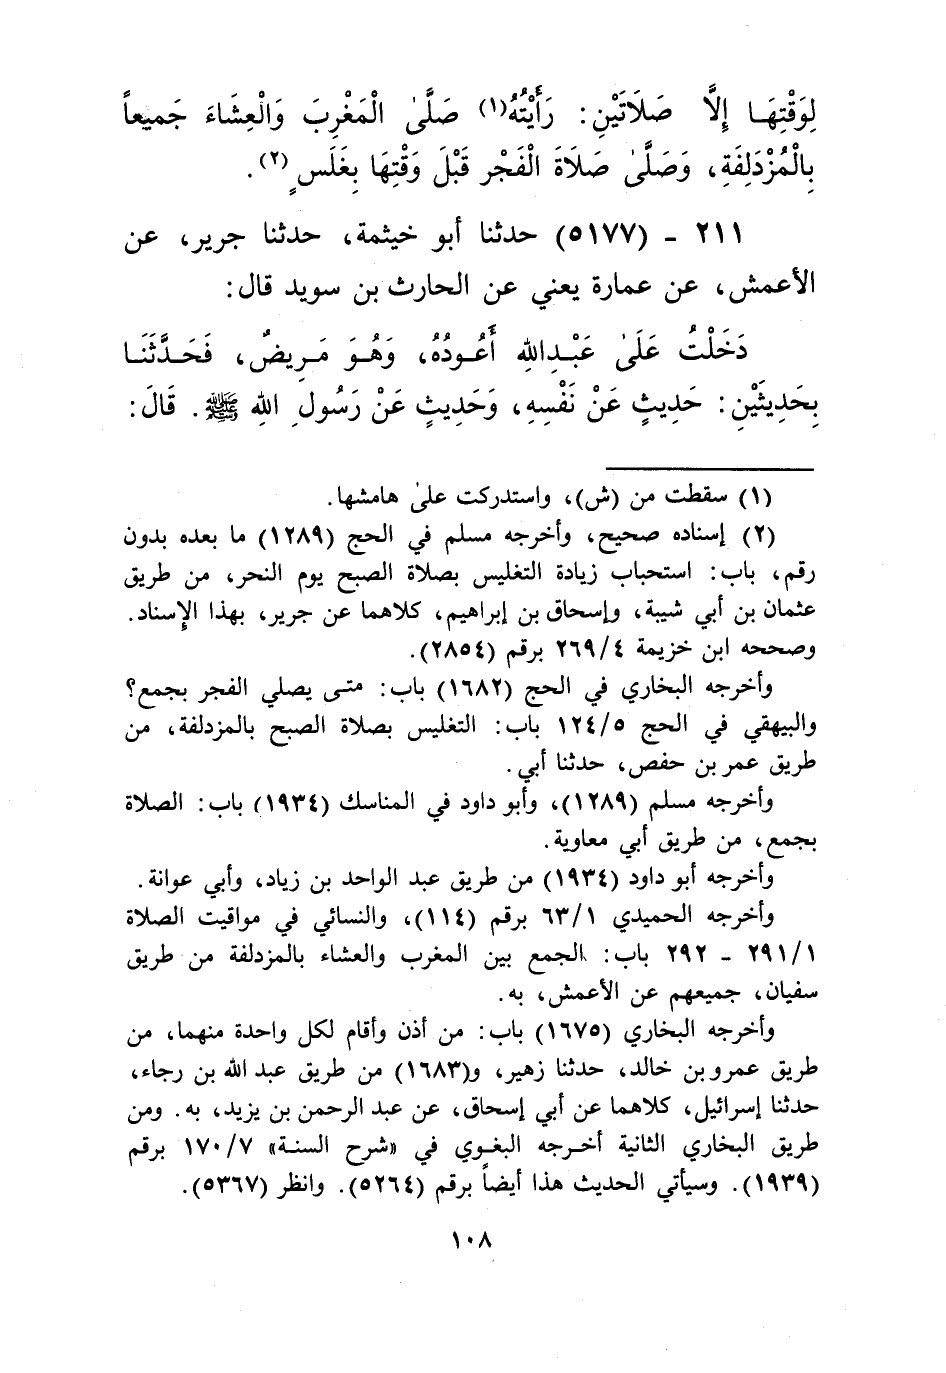 لِوَقْتِهَا إِلَّا صَلَاتَيْنِ: رَأَيْتُهُ(١) صَلَّىٰ الْمَغْرِبَ وَالْعِشَاءَ جَمِيعاً
بِالْمُزْدَلِفَةِ، وَصَلَّىٰ صَلَاةَ الْفَجْرِ قَبْلَ وَقْتِهَا بِغَلَسٍ(٢).
٢١١ - (٥١٧٧) حدثنا أبو خيثمة، حدثنا جرير، عن
الأعمش، عن عمارة يعني عن الحارث بن سويد قال:
دَخَلْتُ عَلَىٰ عَبْدِاللهِ أَعُودُهُ، وَهُوَ مَرِيضٌ، فَحَدَّثَنَا
بِحَدِيثَيْنِ: حَدِيثٍ عَنْ نَفْسِهِ، وَحَدِيثٍ عَنْ رَسُولِ اللهِ ﷺ. قَالَ:
(١) سقطت من (ش)، واستدركت علىٰ هامشها.
(٢) إسناده صحيح، وأخرجه مسلم في الحج (١٢٨٩) ما بعده بدون
رقم، باب: استحباب زيادة التغليس بصلاة الصبح يوم النحر، من طريق
عثمان بن أبي شيبة، وإسحاق بن إبراهيم، كلاهما عن جرير، بهذا الإسناد.
وصححه ابن خزيمة ٢٦٩/٤ برقم (٢٨٥٤).
وأخرجه البخاري في الحج (١٦٨٢) باب: متى يصلي الفجر بجمع؟
والبيهقي في الحج ١٢٤/٥ باب: التغليس بصلاة الصبح بالمزدلفة، من
طريق عمر بن حفص، حدثنا أبي.
وأخرجه مسلم (١٢٨٩)، وأبو داود في المناسك (١٩٣٤) باب: الصلاة
بجمع، من طريق أبي معاوية.
وأخرجه أبو داود (١٩٣٤) من طريق عبد الواحد بن زياد، وأبي عوانة.
وأخرجه الحميدي ٦٣/١ برقم (١١٤)، والنسائي في مواقيت الصلاة
٢٩١/١ - ٢٩٢ باب: الجمع بين المغرب والعشاء بالمزدلفة من طريق
سفيان، جميعهم عن الأعمش، به.
وأخرجه البخاري (١٦٧٥) باب: من أذن وأقام لكل واحدة منهما، من
طريق عمرو بن خالد، حدثنا زهير، و(١٦٨٣) من طريق عبد الله بن رجاء،
حدثنا إسرائيل، كلاهما عن أبي إسحاق، عن عبد الرحمن بن يزيد، به. ومن
طريق البخاري الثانية أخرجه البغوي في «شرح السنة» ١٧٠/٧ برقم
(١٩٣٩). وسيأتي الحديث هذا أيضاً برقم (٥٢٦٤). وانظر (٥٣٦٧).
١٠٨